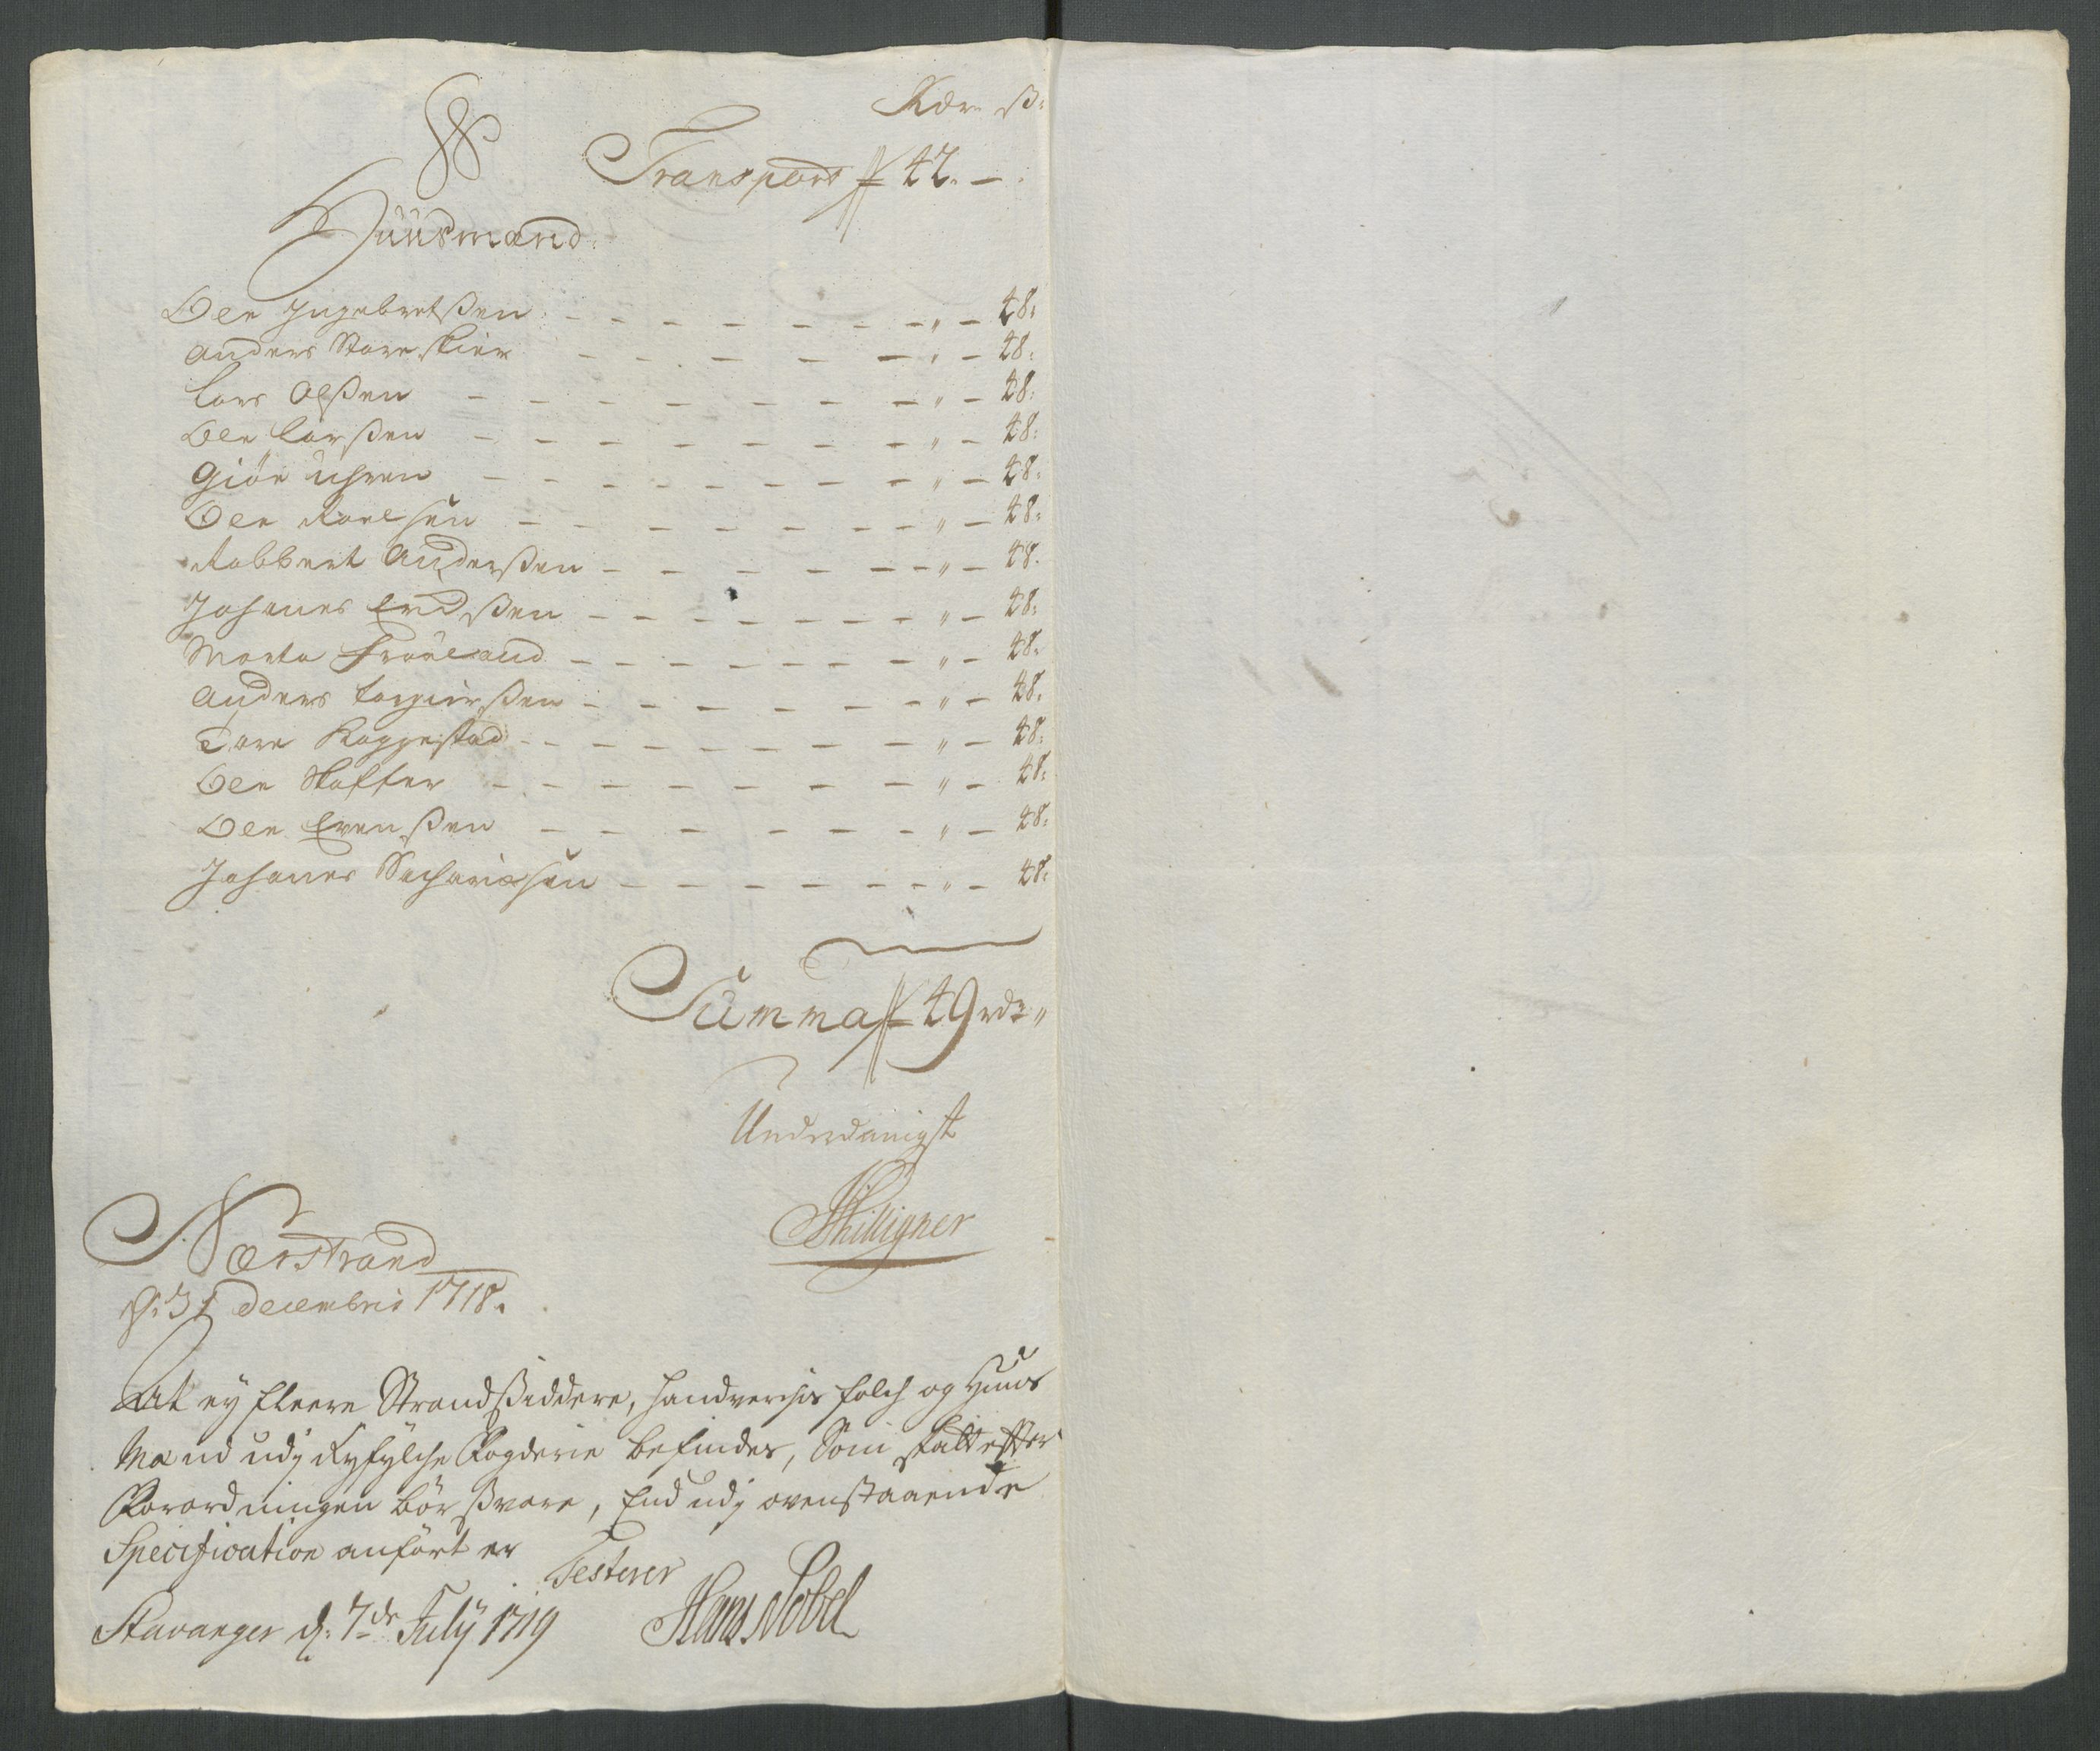 Rdr ß:
Transport 42. —
Huusmænd:
Ole Ingebretßen — 48:
Anders Storeskier — 48:
Lars Olßen — 48:
Ole Larßen — 48:
Giöe Uhren — 48:
Ole Roelsen — 48:
Robbert Anderßen — 48.
Johanes Erdßen — 48:
Morta Fröeland — 48:
Anders Torgierßen — 48.
Tore Koggestad — 48:
Ole Skotter — 48:
Ole Evenßen — 48:
Johanes Sachariæsen — 48:
Summa 49 rdr
Underdanigst
Nærstrand
d: 31 Decembris 1718.
At ey fleere Strandßiddere, Handverchs folch og Huus
Mænd udj Ryfylche Fogderie befindes, Som skatt efter
Forordningen bör ßvare, End udj ovenstaaende
Specification anfört er
Testerer
Stavanger d: 7de July 1719 Hans Nobel